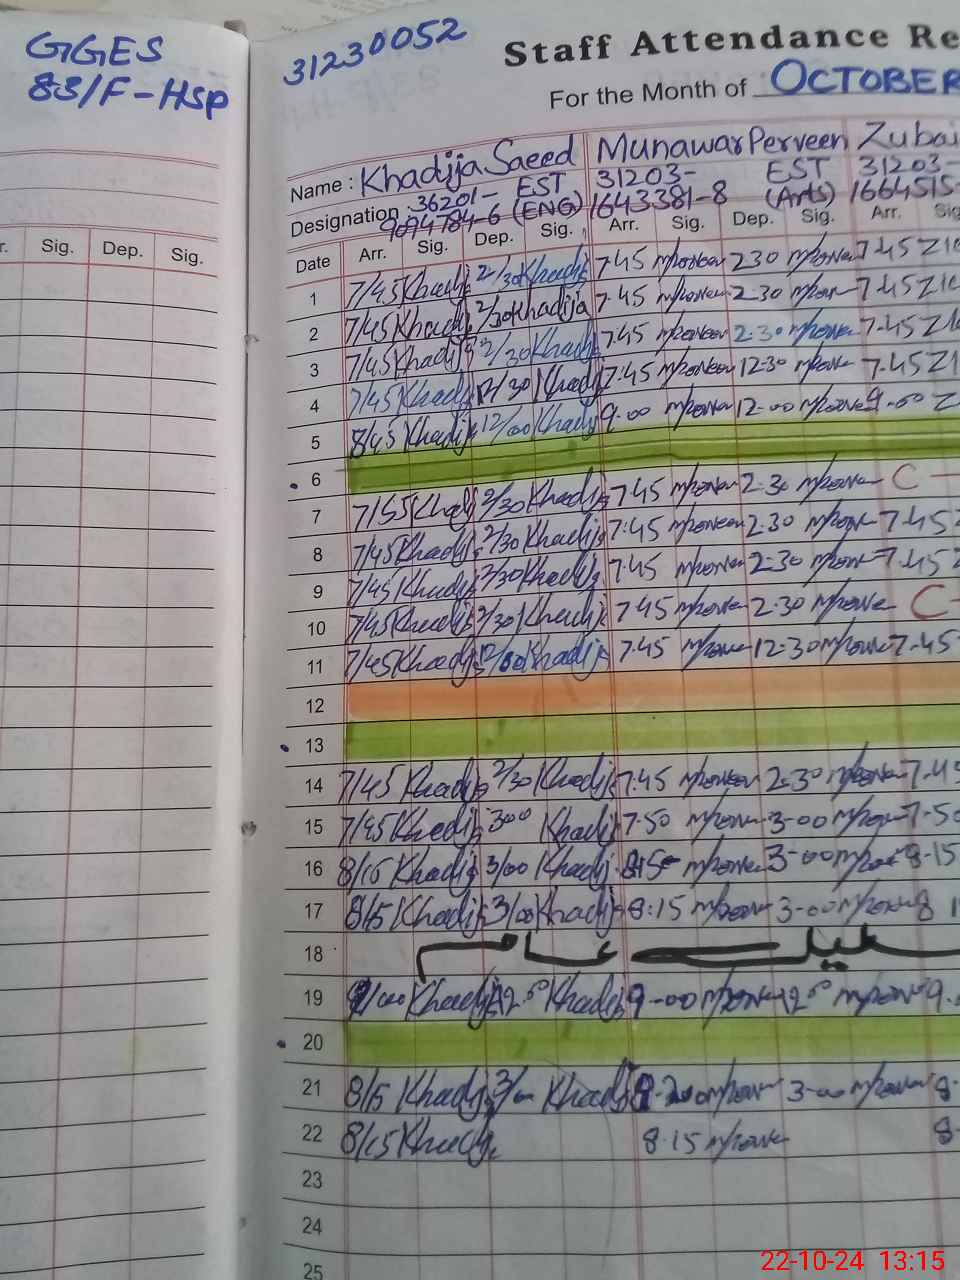 GGES
83/F-Hsp
31230052
Staff Attendance Re
For the Month of OCTOBER
Name : Khadija Saeed Munawar Perveen Zubai
Designation 36201- EST 31203- EST 31203-
9694784-6 (ENG) 1643381-8 (Arts) 1664515-
r. Sig. Dep. Sig.
Date Arr. Sig. Dep. Sig. Arr. Sig. Dep. Sig. Arr. Sig
1 7/45 Khadija 2/30 Khadija 7.45 2.30 7.45
2 7/45 Khadija 2/30 Khadija 7.45 2.30 7.45
3 7/45 Khadija 2/30 Khadija 7.45 2.30 7.45
4 7/45 Khadija 12/30 Khadija 7.45 12.30 7.45
5 8/45 Khadija 12/00 Khadija 9.00 12-00 9.00
6
7 7/55 Khadija 2/30 Khadija 7.45 2.30 C
8 7/45 Khadija 2/30 Khadija 7:45 2.30 7.45
9 7/45 Khadija 2/30 Khadija 7.45 2.30 7.45
10 7/45 Khadija 2/30 Khadija 7.45 2.30 C
11 7/45 Khadija Khadija 7.45 12.30 7.45
12
13
14 7/45 Khadija 2/30 Khadija 7.45 2.30 7.45
15 7/45 Khadija 3:00 Khadija 7.50 3-00 7-50
16 8/15 Khadija 3/00 Khadija 8:15 3-00 8.15
17 8/15 Khadija 3/00 Khadija 8:15 3-00 8
18 عام تعطیل
19 9/00 Khadija 12.00 Khadija 9-00 12.00 9.
20
21 8/15 Khadija 3/00 Khadija 8.20 3-00 8-
22 8/15 Khadija 8.15 8-
23
24
25
22-10-24 13:15